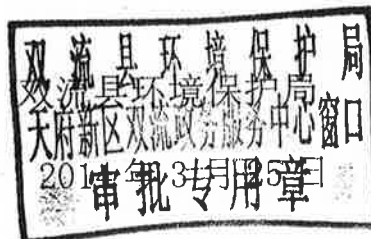 双流县环境保护局
双流县环境保护局
天府新区双流政务服务中心窗口
年3月
审批专用章